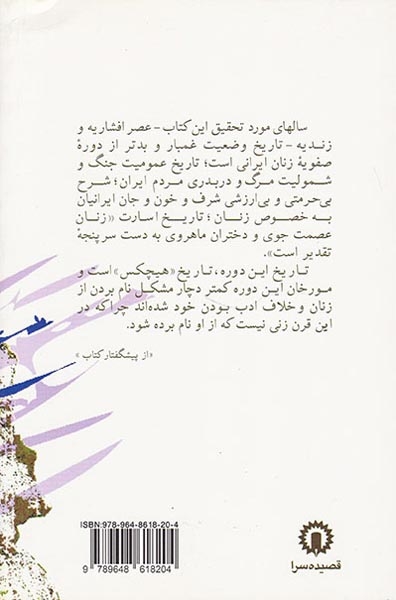 سالهای مورد تحقیق این کتاب - عصر افشاریه و
زندیه - تاریخ وضعیت غمبار و بدتر از دورهٔ
صفویهٔ زنان ایرانی است؛ تاریخ عمومیت جنگ و
شمولیت مرگ و دربدری مردم ایران؛ شرح
بی‌حرمتی و بی‌ارزشی شرف و خون و جان ایرانیان
به خصوص زنان؛ تاریخ اسارت «زنان
عصمت جوی و دختران ماهروی به دست سرپنجهٔ
تقدیر است».
تاریخ این دوره، تاریخ «هیچکس» است و
مورخان این دوره کمتر دچار مشکل نام بردن از
زنان و خلاف ادب بودن خود شده‌اند چرا که در
این قرن زنی نیست که از او نام برده شود.
«از پیشگفتار کتاب»
ISBN:978-964-8618-20-4
9 789648 618204
قصیده‌سرا